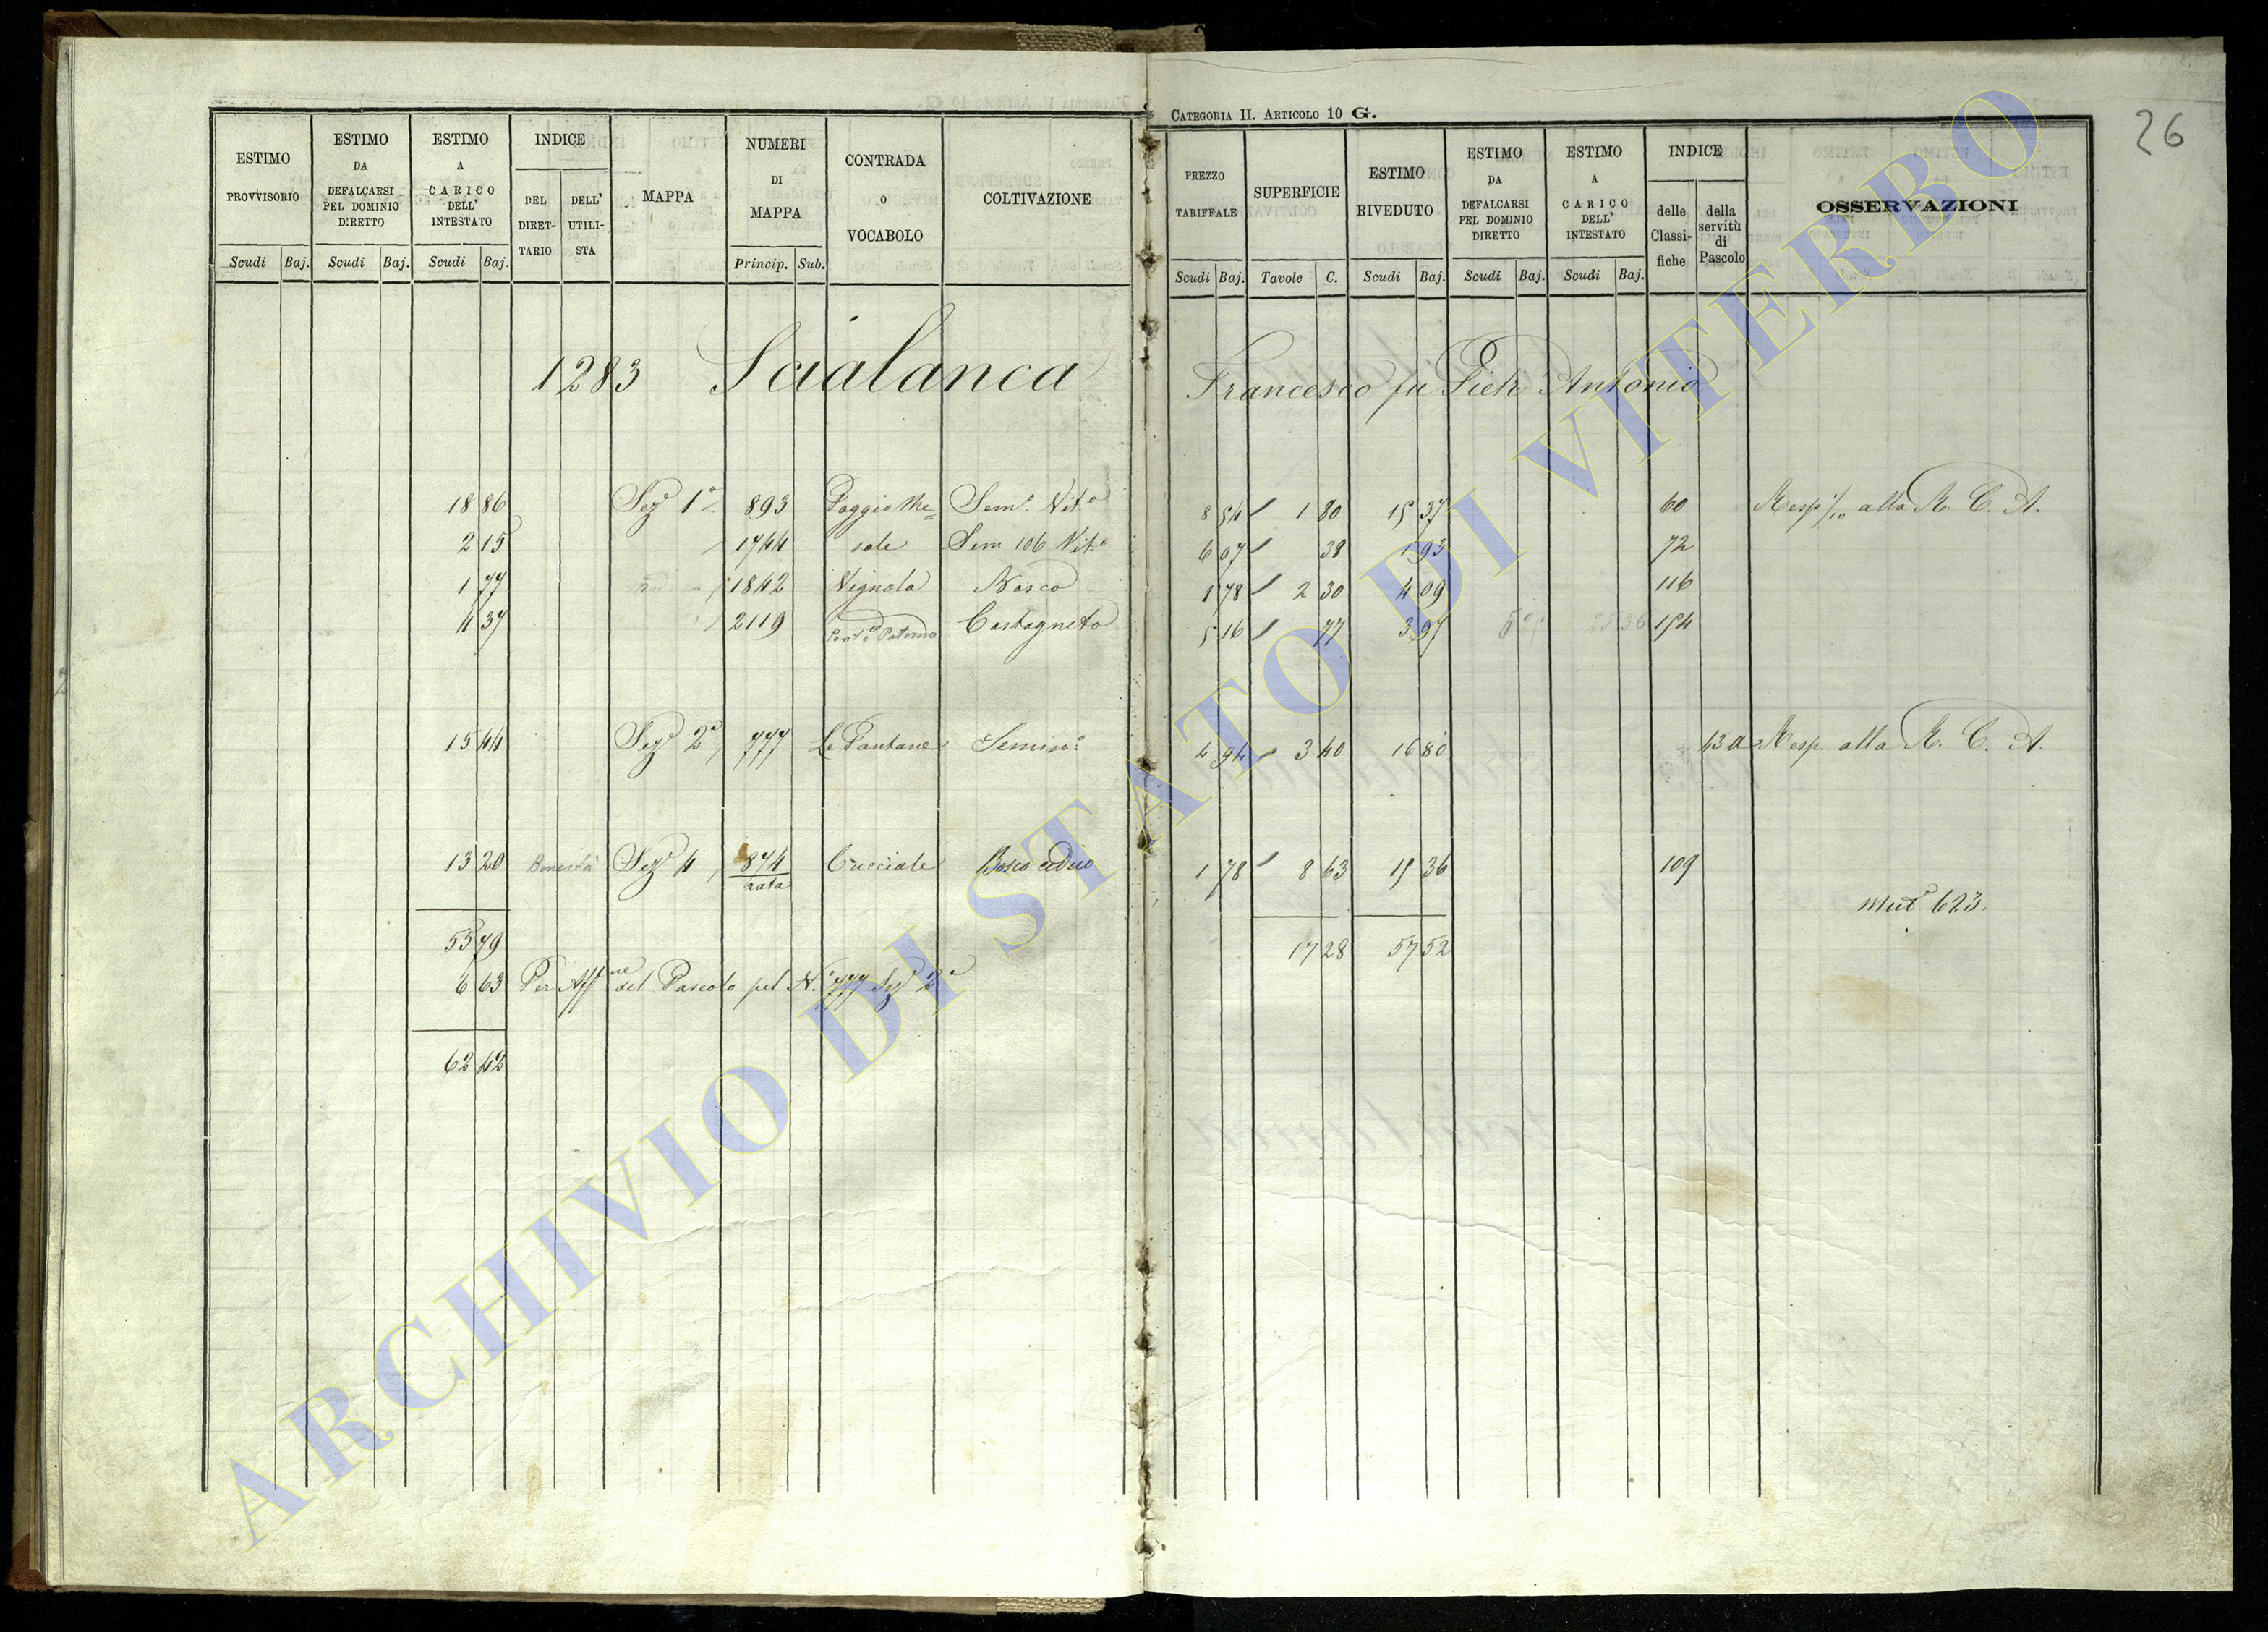 CATEGORIA II. ARTICOLO 10 G.
26
ESTIMO PROVVISORIO Scudi Baj.
ESTIMO DA DEFALCARSI PEL DOMINIO DIRETTO Scudi Baj.
ESTIMO A CARICO DELL' INTESTATO Scudi Baj.
INDICE DEL DIRETTARIO DELL' UTILISTA
MAPPA
NUMERI DI MAPPA Princip. Sub.
CONTRADA o VOCABOLO
COLTIVAZIONE
PREZZO TARIFFALE Scudi Baj.
SUPERFICIE Tavole C.
ESTIMO RIVEDUTO Scudi Baj.
ESTIMO DA DEFALCARSI PEL DOMINIO DIRETTO Scudi Baj.
ESTIMO A CARICO DELL' INTESTATO Scudi Baj.
INDICE delle Classifiche della servitù di Pascolo
OSSERVAZIONI
1283 Scialanca Francesco fu Pietr Antonio
18 86 Sez.e 1a 893 Poggio Me= Sem.o Vit.o 8 54 1 80 15 37 60 Resp 1/10 alla R. C. A.
2 15 1744 sole Sem 106 Vit.o 6 07 38 1 93 72
1 77 1842 Vignola Bosco 1 78 2 30 4 09 116
4 37 2119 Paterno Castagneto 5 16 77 3 97 154
15 44 Sez.e 2a 777 Le Pantane Semin.o 4 94 3 40 16 80 43 a Resp. alla R. C. A.
13 20 Sez.e 4 874 rata Crocciale Bosco ceduo 1 78 8 63 15 36 109
Mut.e 623
55 79 17 28 57 52
6 63 Per Aff.ne del Pascolo pel N.o 777 Sez.e 2a
62 42
ARCHIVIO DI STATO DI VITERBO